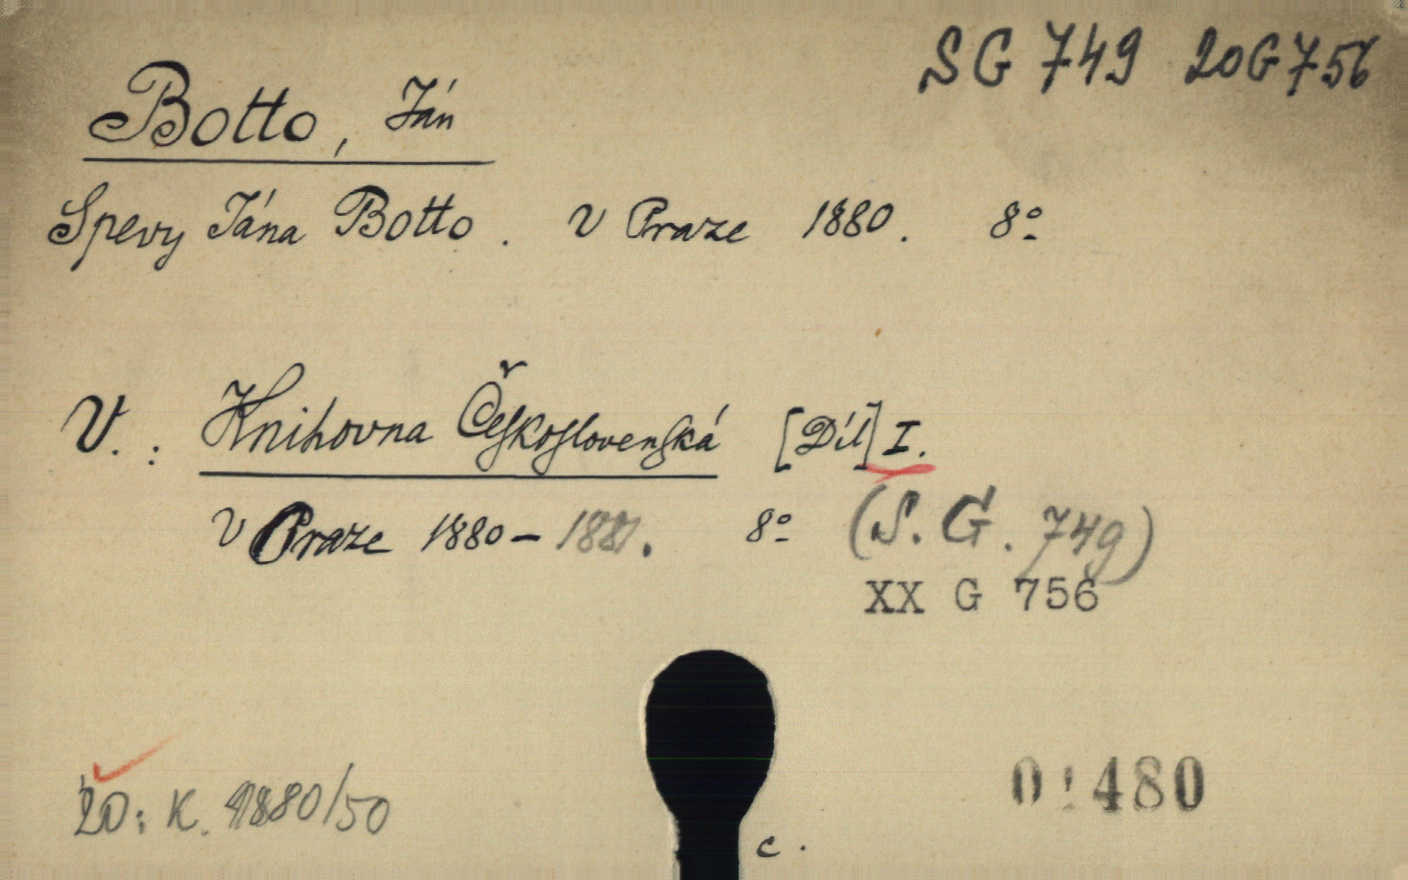 SG 749 20G756
Botto, Ján
Spevy Jána Botto. V Praze 1880. 8º
V.: Knihovna Československá [Díl] I.
V Praze 1880-1881. 8º (S. G. 749)
XX G 756
K. 1880/50
480
c.